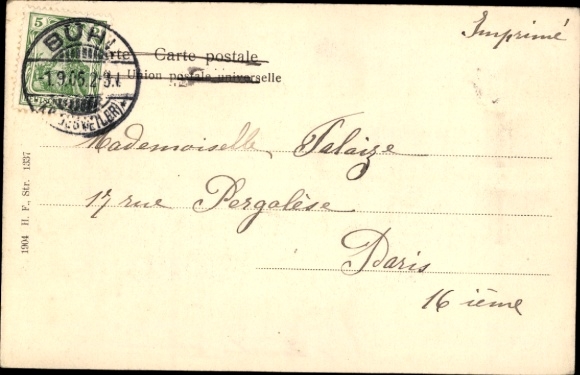 5
BÜHL
1.9.05.2-3
Imprimé
Carte postale
Union postale universelle
Mademoiselle Falaize
17 rue Pergolèse
Paris
16 ième
1904 H. F., Str. 1337